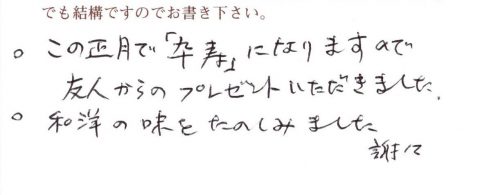 でも結構ですのでお書き下さい。
○ この正月で「卒寿」になりますので
友人からのプレゼントいただきました.
○ 和洋の味をたのしみました
謝々